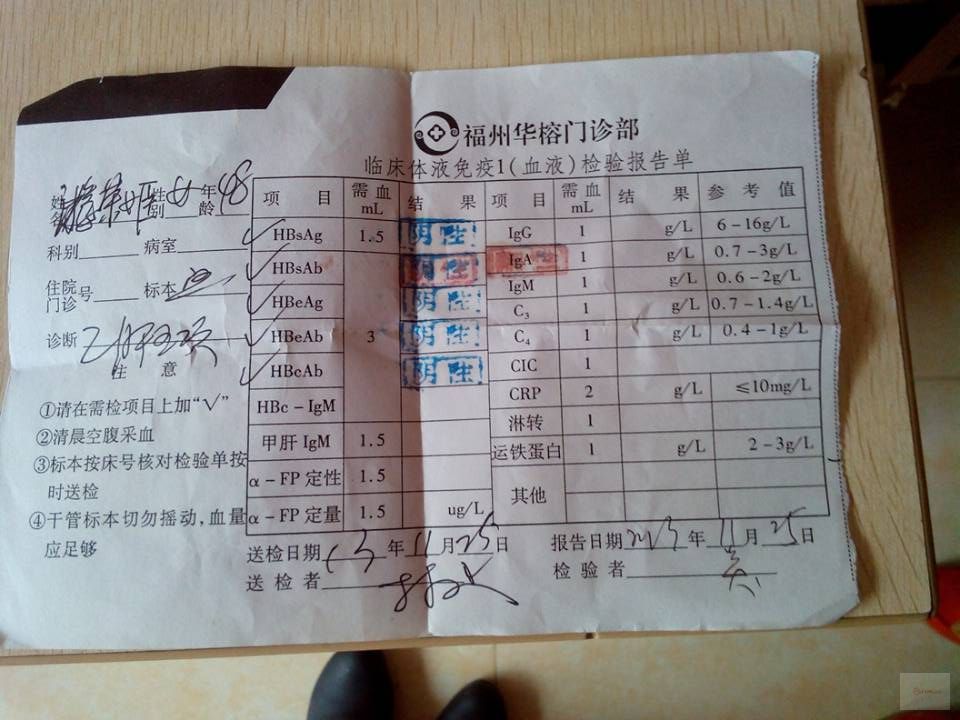 福州华榕门诊部
临床体液免疫1(血液)检验报告单
姓名 性别 女 年龄 48
科别 病室
住院门诊号 标本 血
诊断 乙肝五项
注 意
①请在需检项目上加“√”
②清晨空腹采血
③标本按床号核对检验单按
时送检
④干管标本切勿摇动,血量
应足够
项 目 需血mL 结 果 项 目 需血mL 结 果 参 考 值
√ HBsAg 1.5 阴性 IgG 1 g/L 6-16g/L
√ HBsAb IgA 1 g/L 0.7-3g/L
√ HBeAg 阴性 IgM 1 g/L 0.6-2g/L
C3 1 g/L 0.7-1.4g/L
√ HBeAb 3 阴性 C4 1 g/L 0.4-1g/L
√ HBcAb 阴性 CIC 1
HBc-IgM CRP 2 g/L ≤10mg/L
淋转 1
甲肝IgM 1.5 运铁蛋白 1 g/L 2-3g/L
α-FP定性 1.5 其他
α-FP定量 1.5 ug/L
送检日期 13 年 11 月 25 日 报告日期 2013 年 11 月 25 日
送检者 检验者